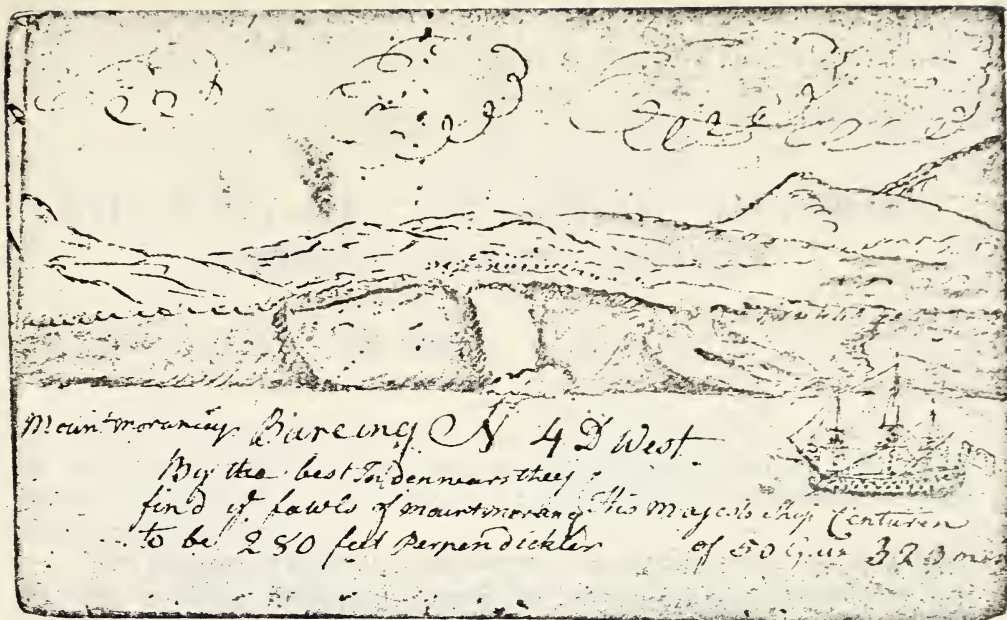 Mountmoranny Bareing N 4 D West
By the best Indennears they
find ye fawls of mountmorang
to be 280 feet Perpendickler
His Majests Ship Centuren
of 50 Gun 323 men